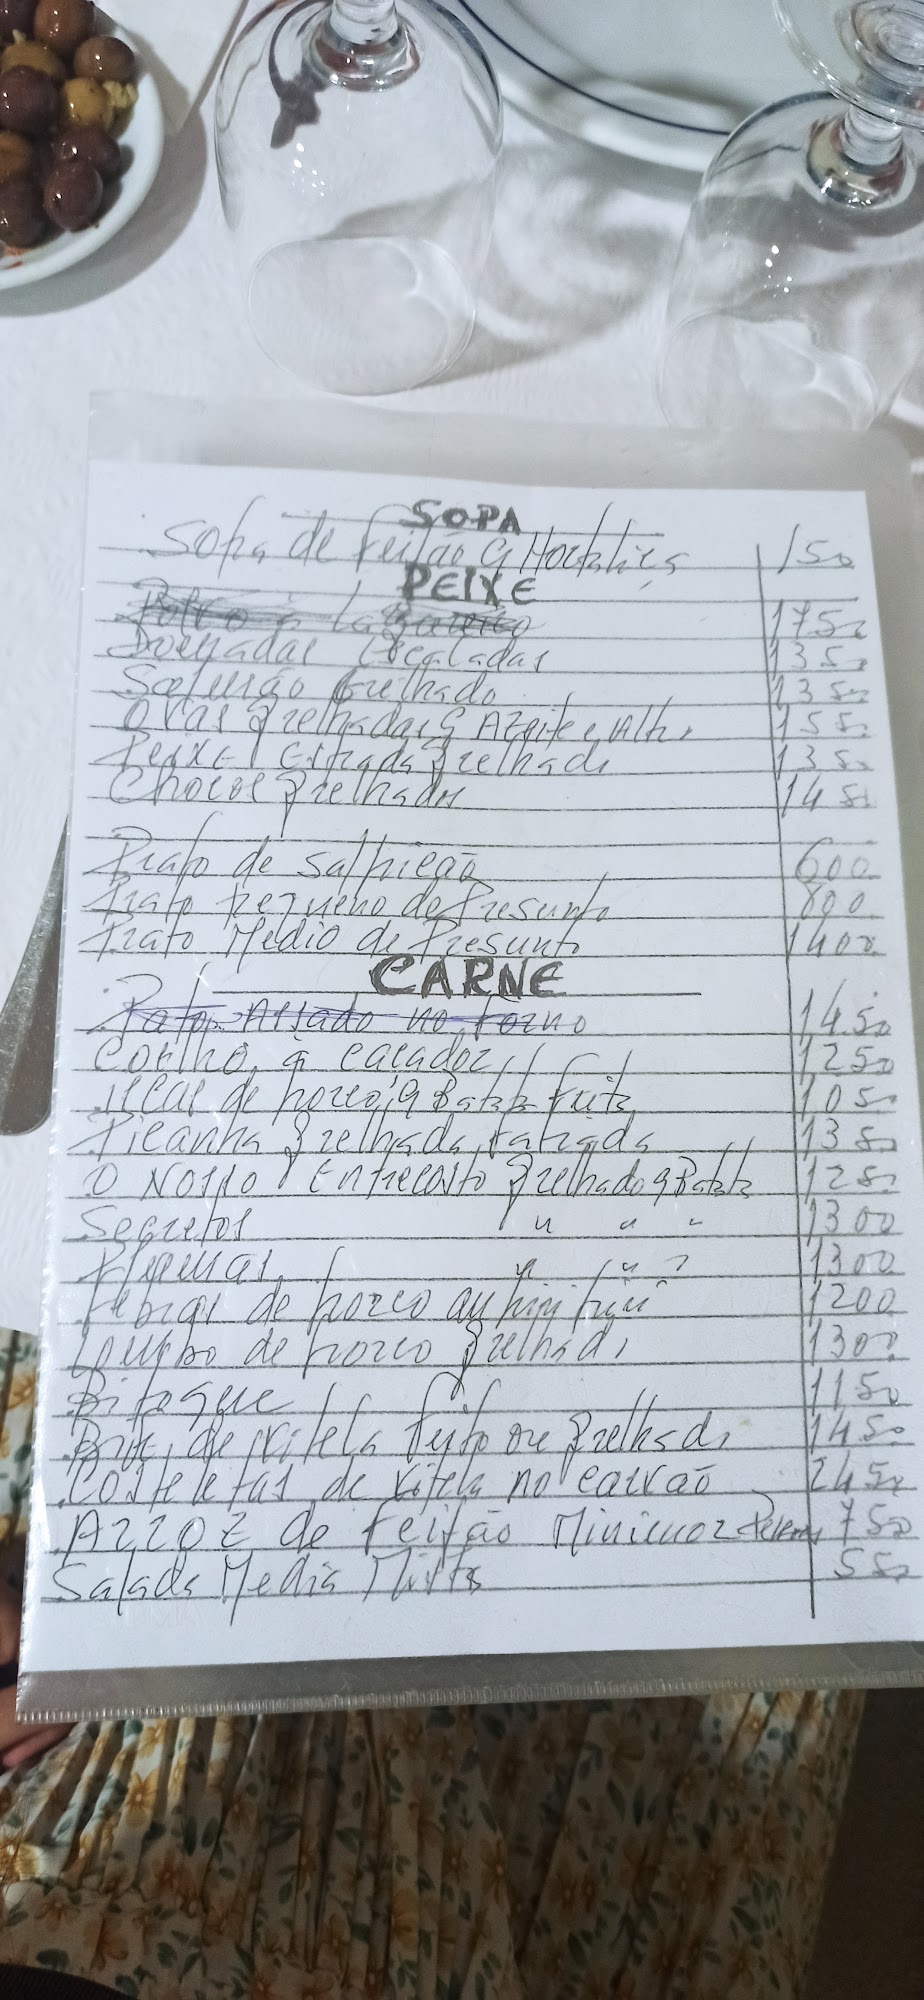 SOPA
Sopa de Feijão C/ Hortaliças 150
PEIXE
Polvo à Lagareiro 1750
Douradas Escaladas 1350
Salmão Grelhado 1350
Ovas Grelhadas C/ Azeite e Alho 1550
Peixe Espada Grelhado 1350
Chocos Grelhados 1450
Prato de Salpicão 600
Prato Pequeno de Presunto 800
Prato Medio de Presunto 1400
CARNE
Pato Assado no Forno 1450
Coelho à caçador 1250
Iscas de porco C/ Batata Frita 1050
Picanha Grelhada Fatiada 1350
O Nosso Entrecosto Grelhado C/ Batata 1250
Secretos " " " 1300
Plumas " " " 1300
Febras de porco 1200
Lombo de porco Grelhado 1300
Bitoque 1150
Bife de Vitela Frito ou Grelhado 1450
Costeletas de Vitela no carvão 2450
Arroz de Feijão Minimo 2 Pessoas 750
Salada Media Mista 550